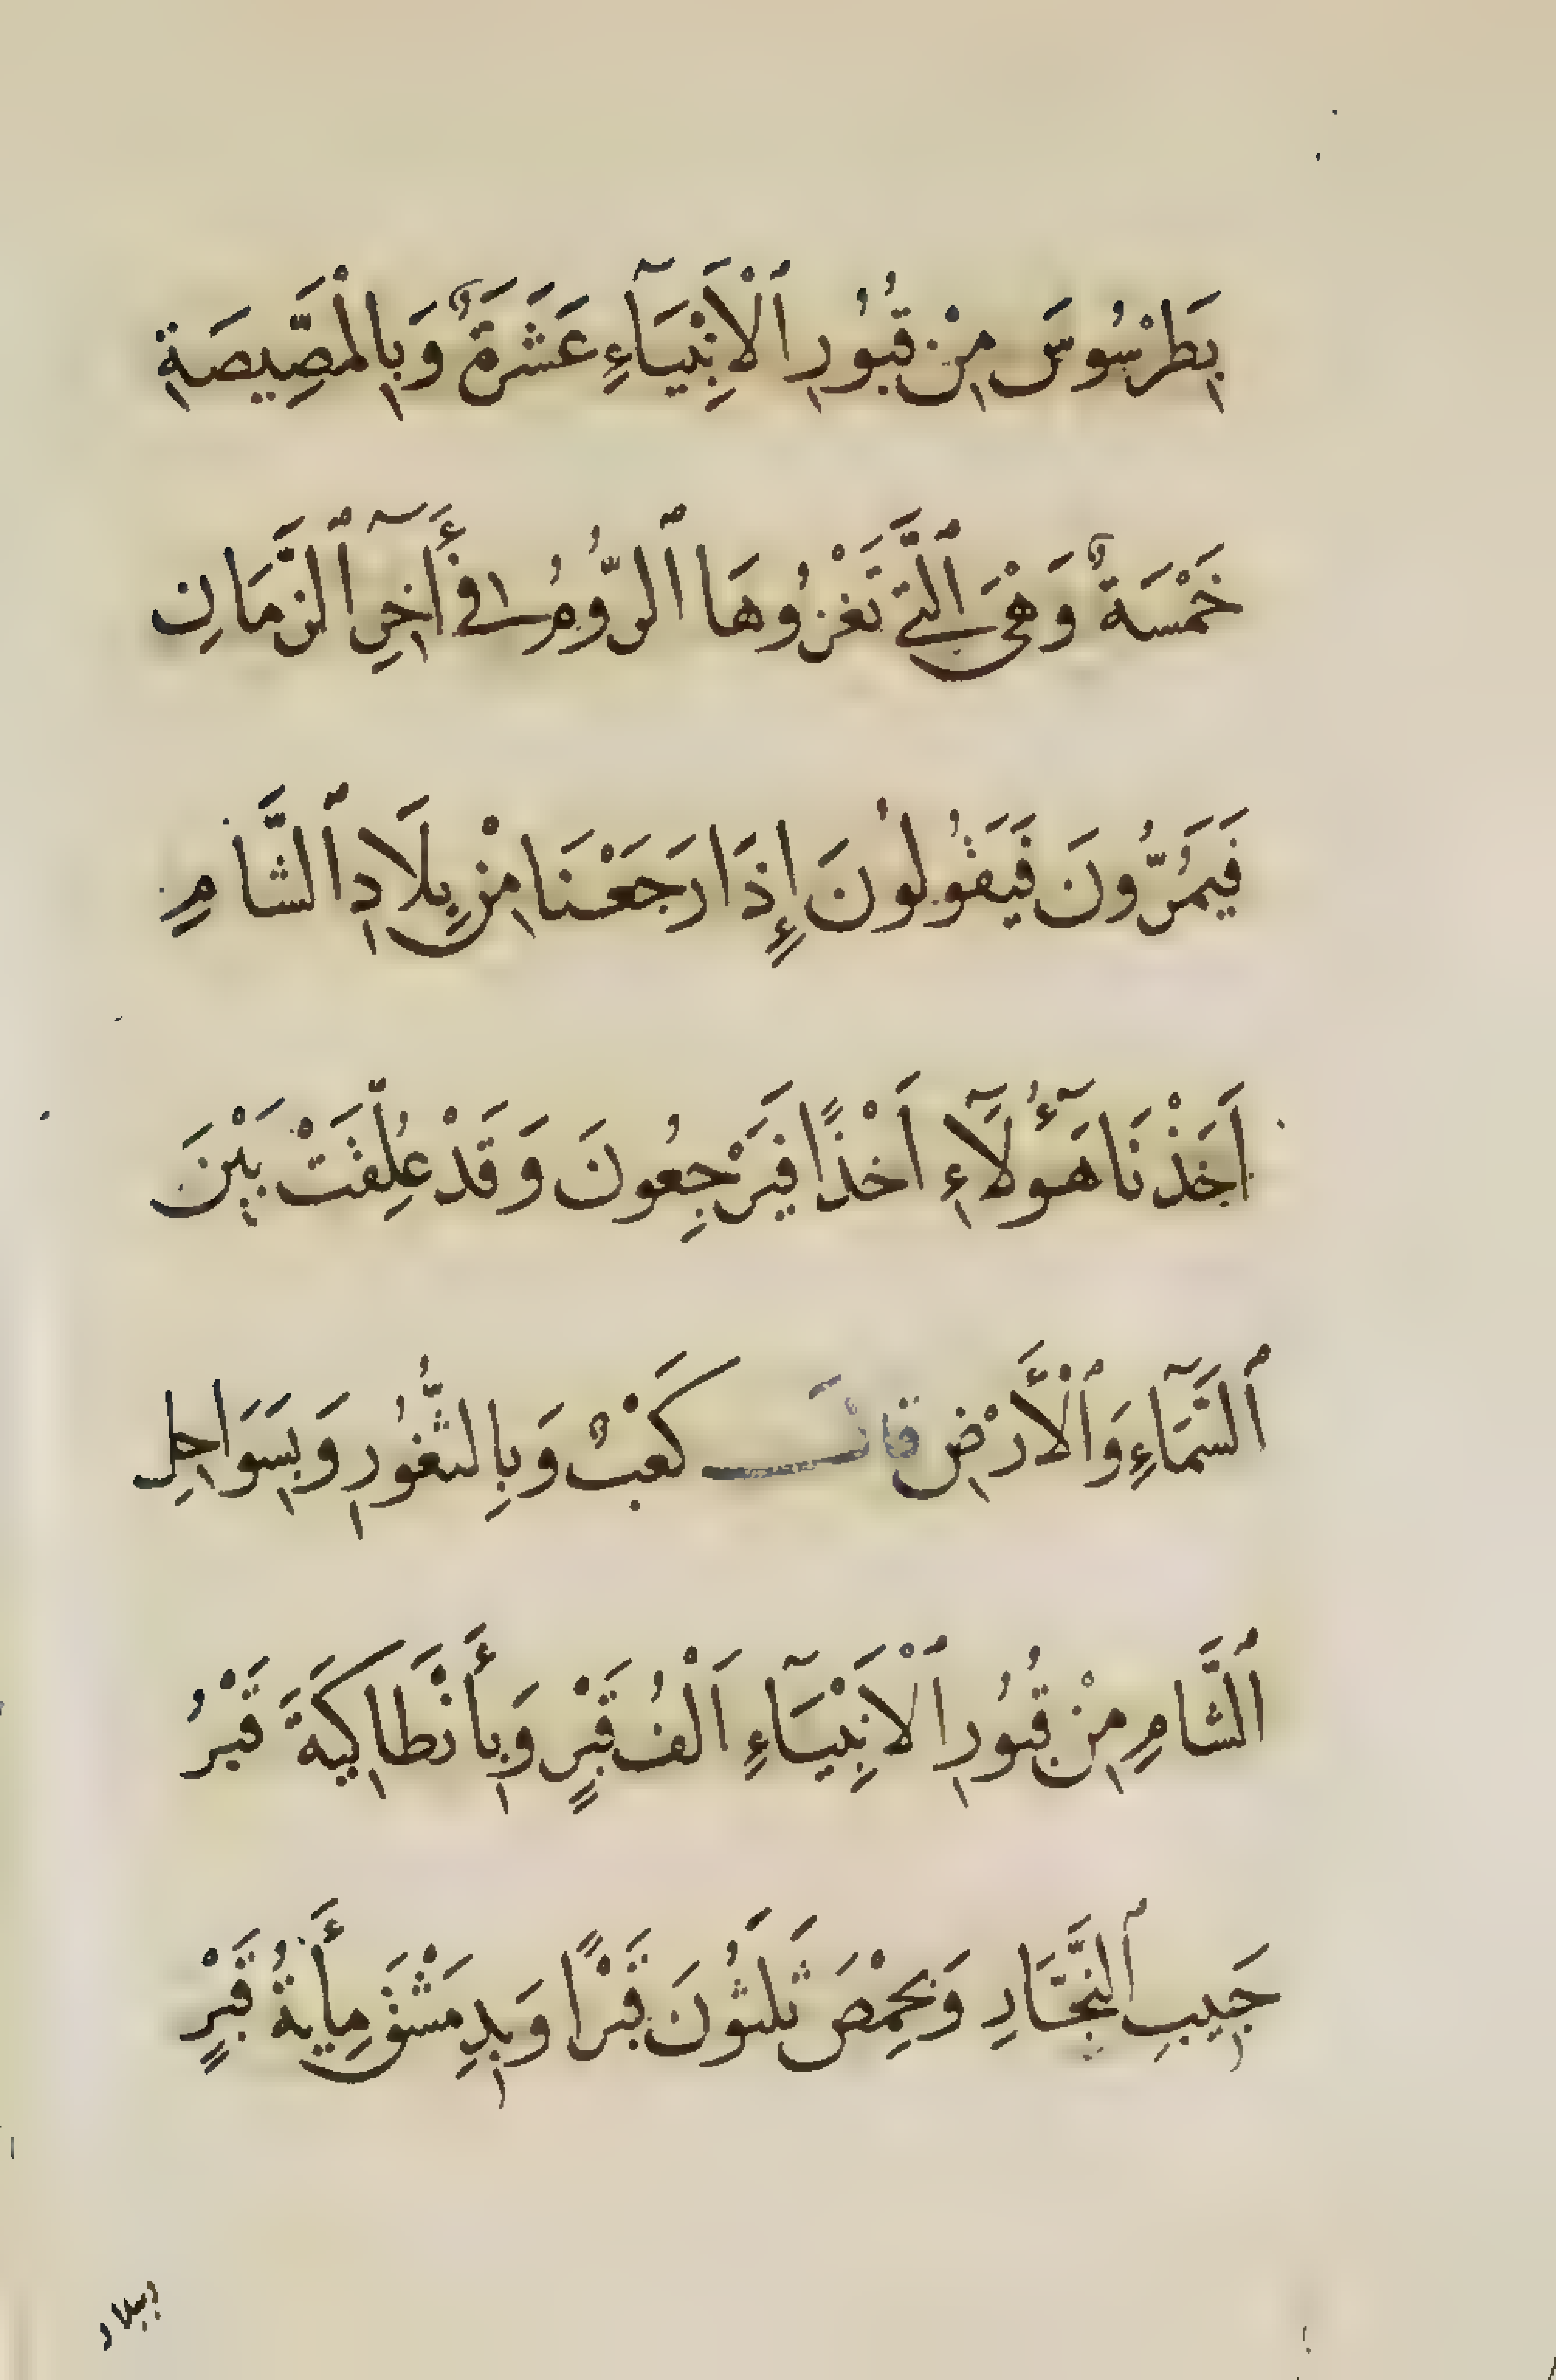 بِطَرْسُوسَ مِنْ قُبُورِ ٱلْأَنْبِيَآءِ عَشَرَةٌ وَبِالْمَصِّيصَةِ
خَمْسَةٌ وَهْيَ ٱلَّتِي تَغْزُوهَا ٱلرُّومُ فِي أَآخِرِ ٱلزَّمَانِ
فَيَمُرُّونَ فَيَقُولُونَ إِذَا رَجَعْنَا مِنْ بِلَادِ ٱلشَّامِ
اَخَذْنَا هَؤُلَآءِ اَخْذًا فَيَرْجِعُونَ وَقَدْ عُلِّقَتْ بَيْنَ
ٱلسَّمَآءِ وَٱلْأَرْضِ قَالَ كَعْبٌ وَبِالثُّغُورِ وَبِسَوَاحِلِ
ٱلشَّامِ مِنْ قُبُورِ ٱلْاَنْبِيَآءِ اَلْفُ قَبْرٍ وَبِأَنْطَاكِيَةَ قَبْرُ
حَبِيبِ ٱلنَّجَّارِ وَبِحِمْصَ ثَلَثُونَ قَبْرًا وَبِدِمَشْقَ مِأَيةُ قَبْرٍ
ببلاد